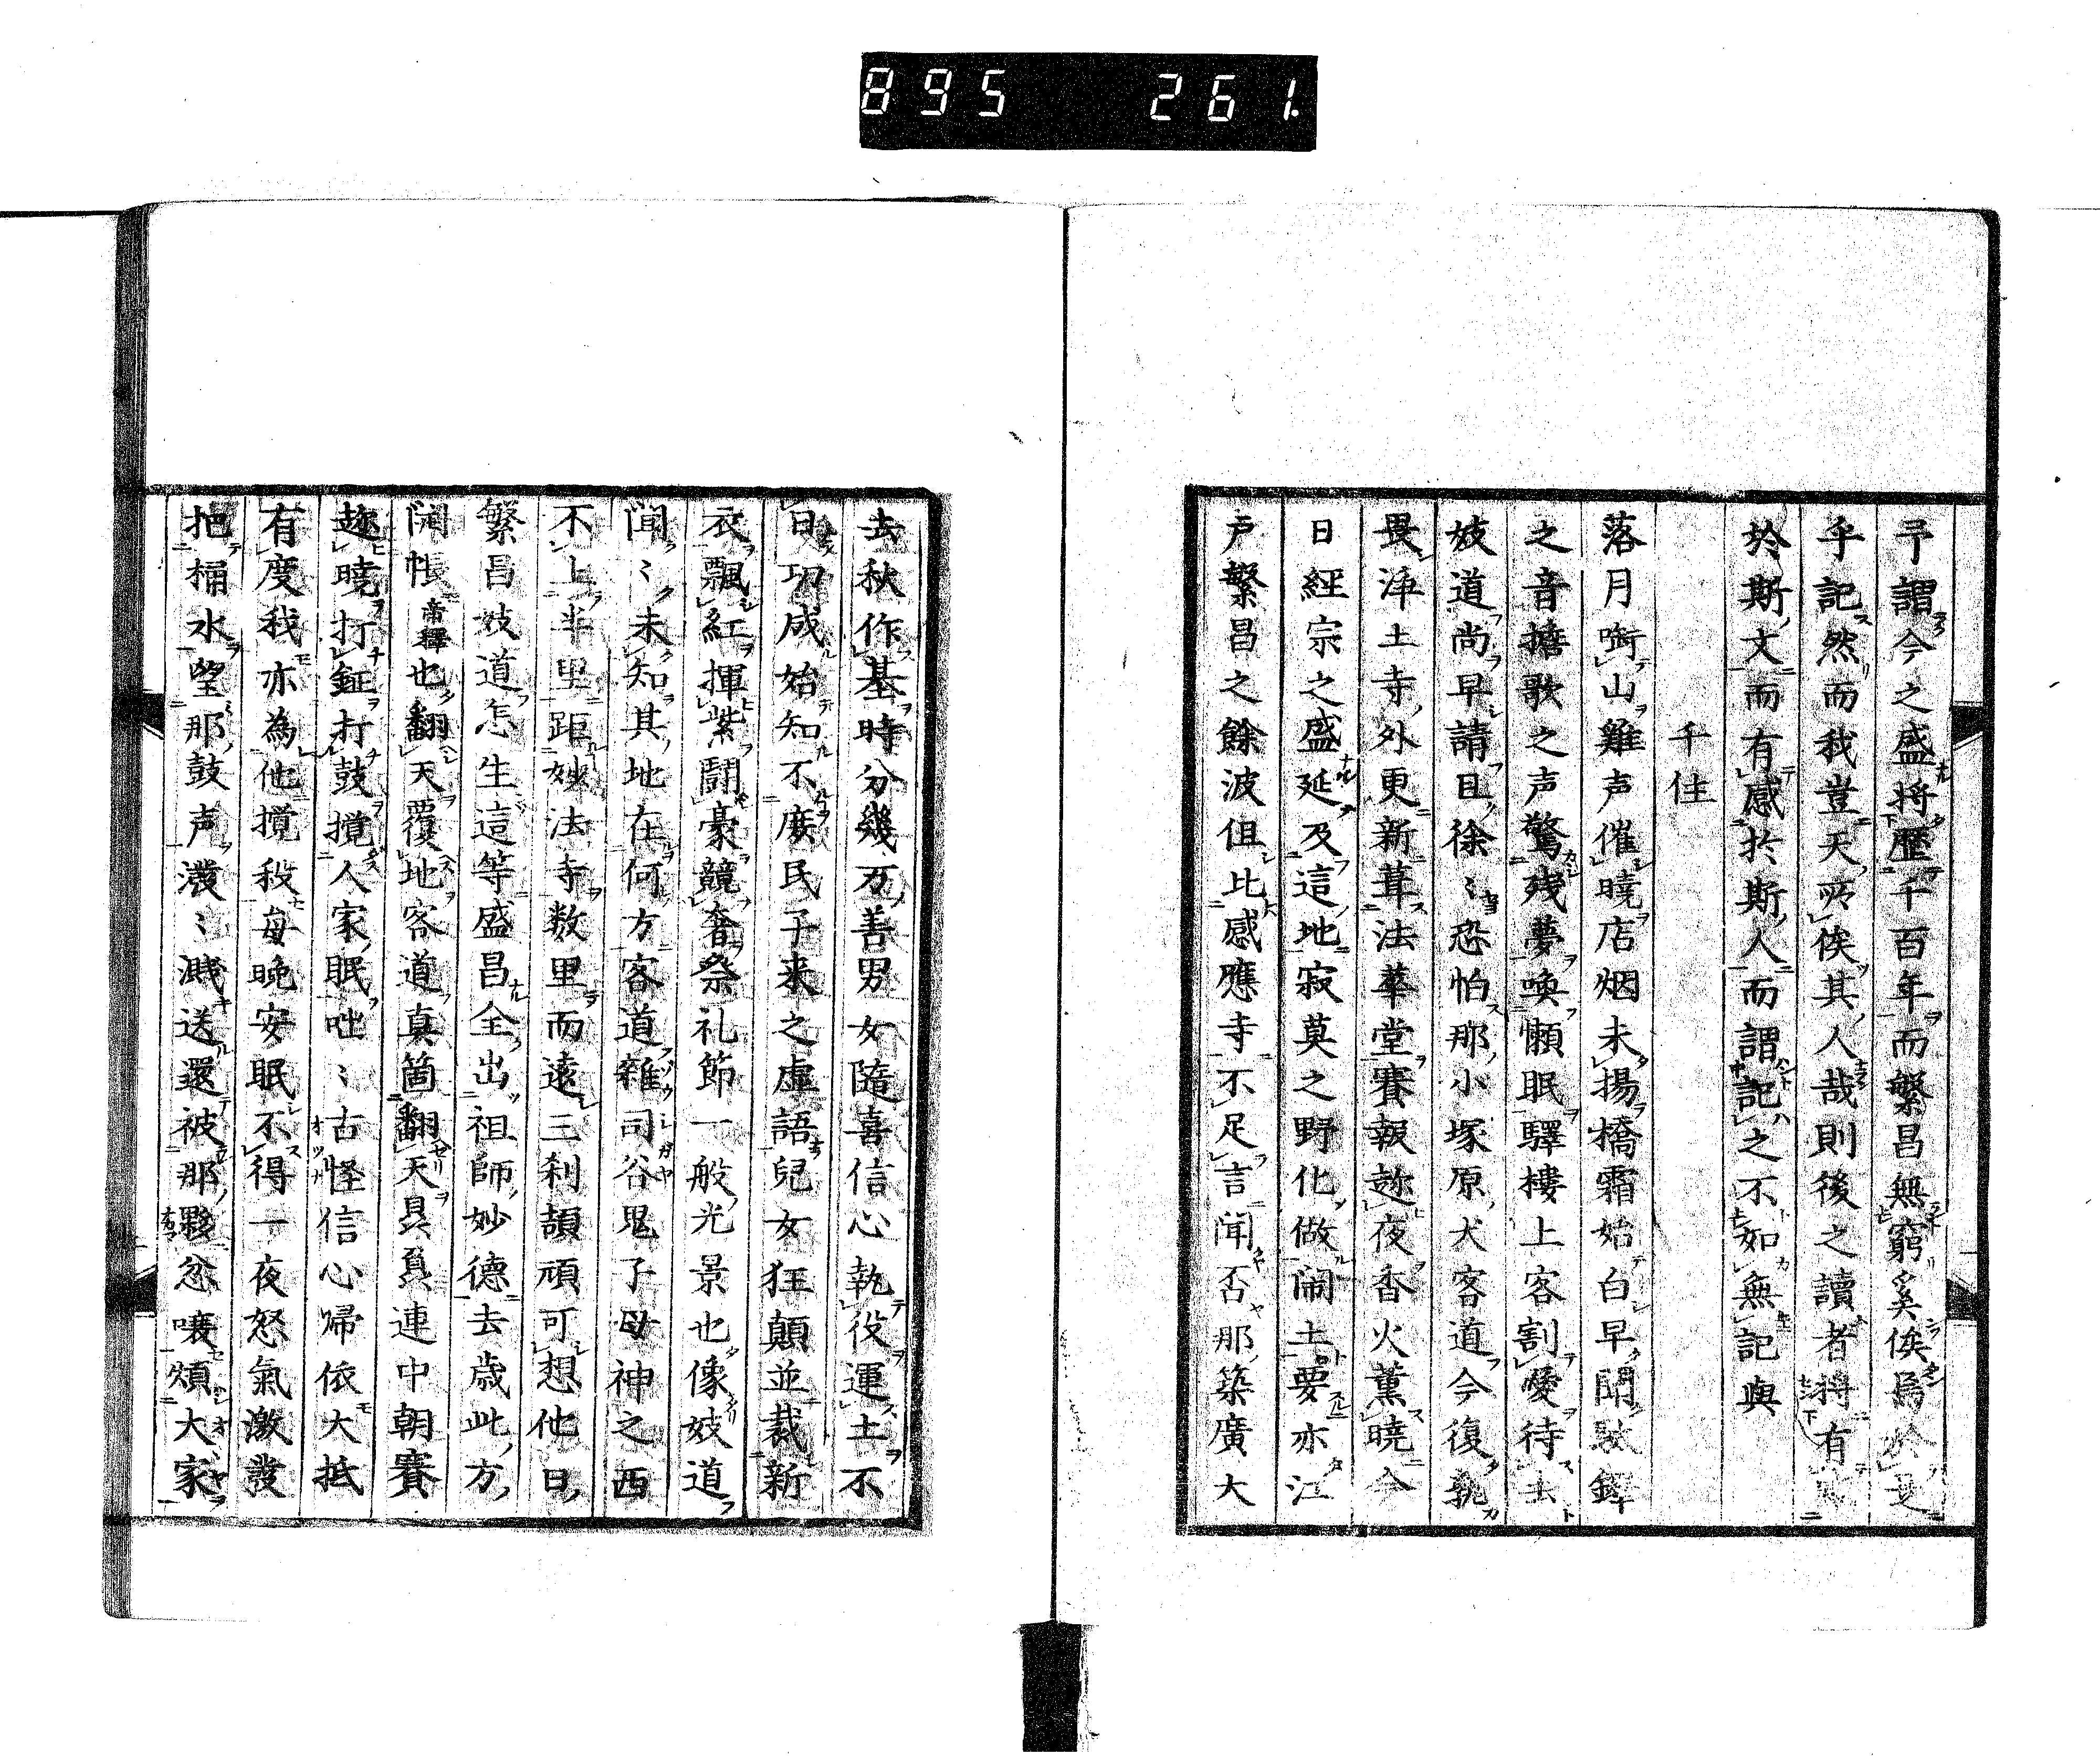 895 261.
予謂今之盛将歷千百年而繁昌無窮奚俟焉於是
乎記然而我豈天所俟其人哉則後之讀者将有
於斯文而有感於斯人而謂記之不如無記與
千住
落月啣山雞声催曉店烟未揚橋霜始白早聞馱鐸
之音擔歌之声驚残夢喚懶眠驛樓上客割愛待去
妓道尚早請且徐〻恐怕那小塚原犬客道今復孰
畏浄土寺外更新葺法華堂賽報趂夜香火薰曉今
日經宗之盛延及這地寂莫之野化做閙土要亦江
戸繁昌之餘波但比感應寺不足言聞否那築廣大
去秋作基時分幾万善男女隨喜信心執役運土不
日功成始知不廃民子来之虚語兒女狂顛並裁新
衣飄紅揮紫鬪豪競奢祭礼節一般光景也像妓道
聞〻未知其地在何方客道雜司谷鬼子母神之西
不上半里距妙法寺数里而遠三刹頡頏可想他日
繁昌妓道怎生這等盛昌全出祖師妙德去歳此方
開帳帝釋也翻天覆地客道真箇翻天具負連中朝賽
趂曉打鉦打鼓攪人家眠咄〻古怪信心帰依大抵
有度我亦為他攪殺毎晩安眠不得一夜怒氣激發
把桶水望那鼓声潑〻濺送還被那夥忿嚷煩大家